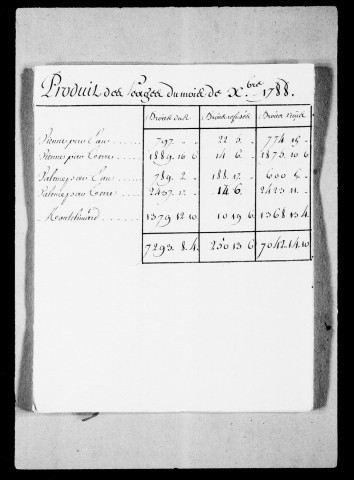 Produit des Peages du mois de Xbre 1788.
Droits dus Droits refusés Droits reçus
Vienne par Eau 797. " " 22 5. " 774 15 "
Vienne par Terre 1889. 16 6 14 6. " 1875. 10 6
Valence par Eau 789. 2. " 188. 17. " 600 5. "
Valence par Terre 2437. 17. " 14 6. " 2423 11. "
Montelimard 1379 12 10 10 19 6 1368 13 4
7293. 8. 4. 250 13 6 7042. 14. 10